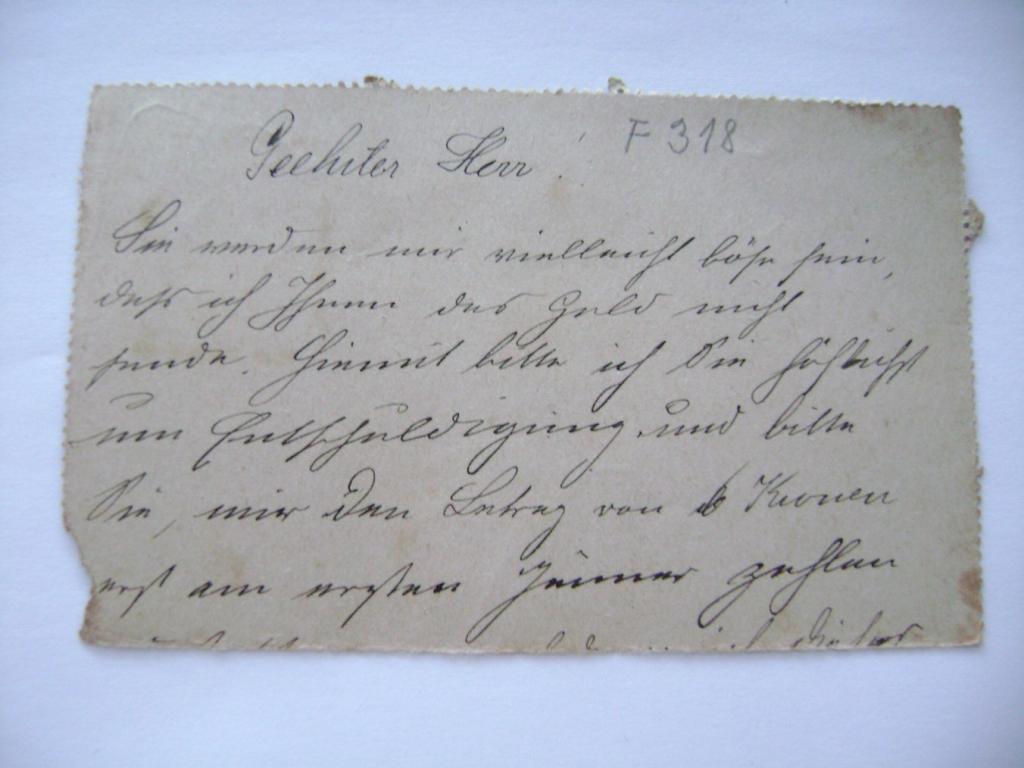 Geehrter Herr! F 318
Sie werden mir vielleicht böse sein,
daß ich Ihnen das Geld nicht
sende. Hiemit bitte ich Sie höflichst
um Entschuldigung und bitte
Sie, mir den Betrag von 6 Kronen
erst am ersten Jänner zahlen